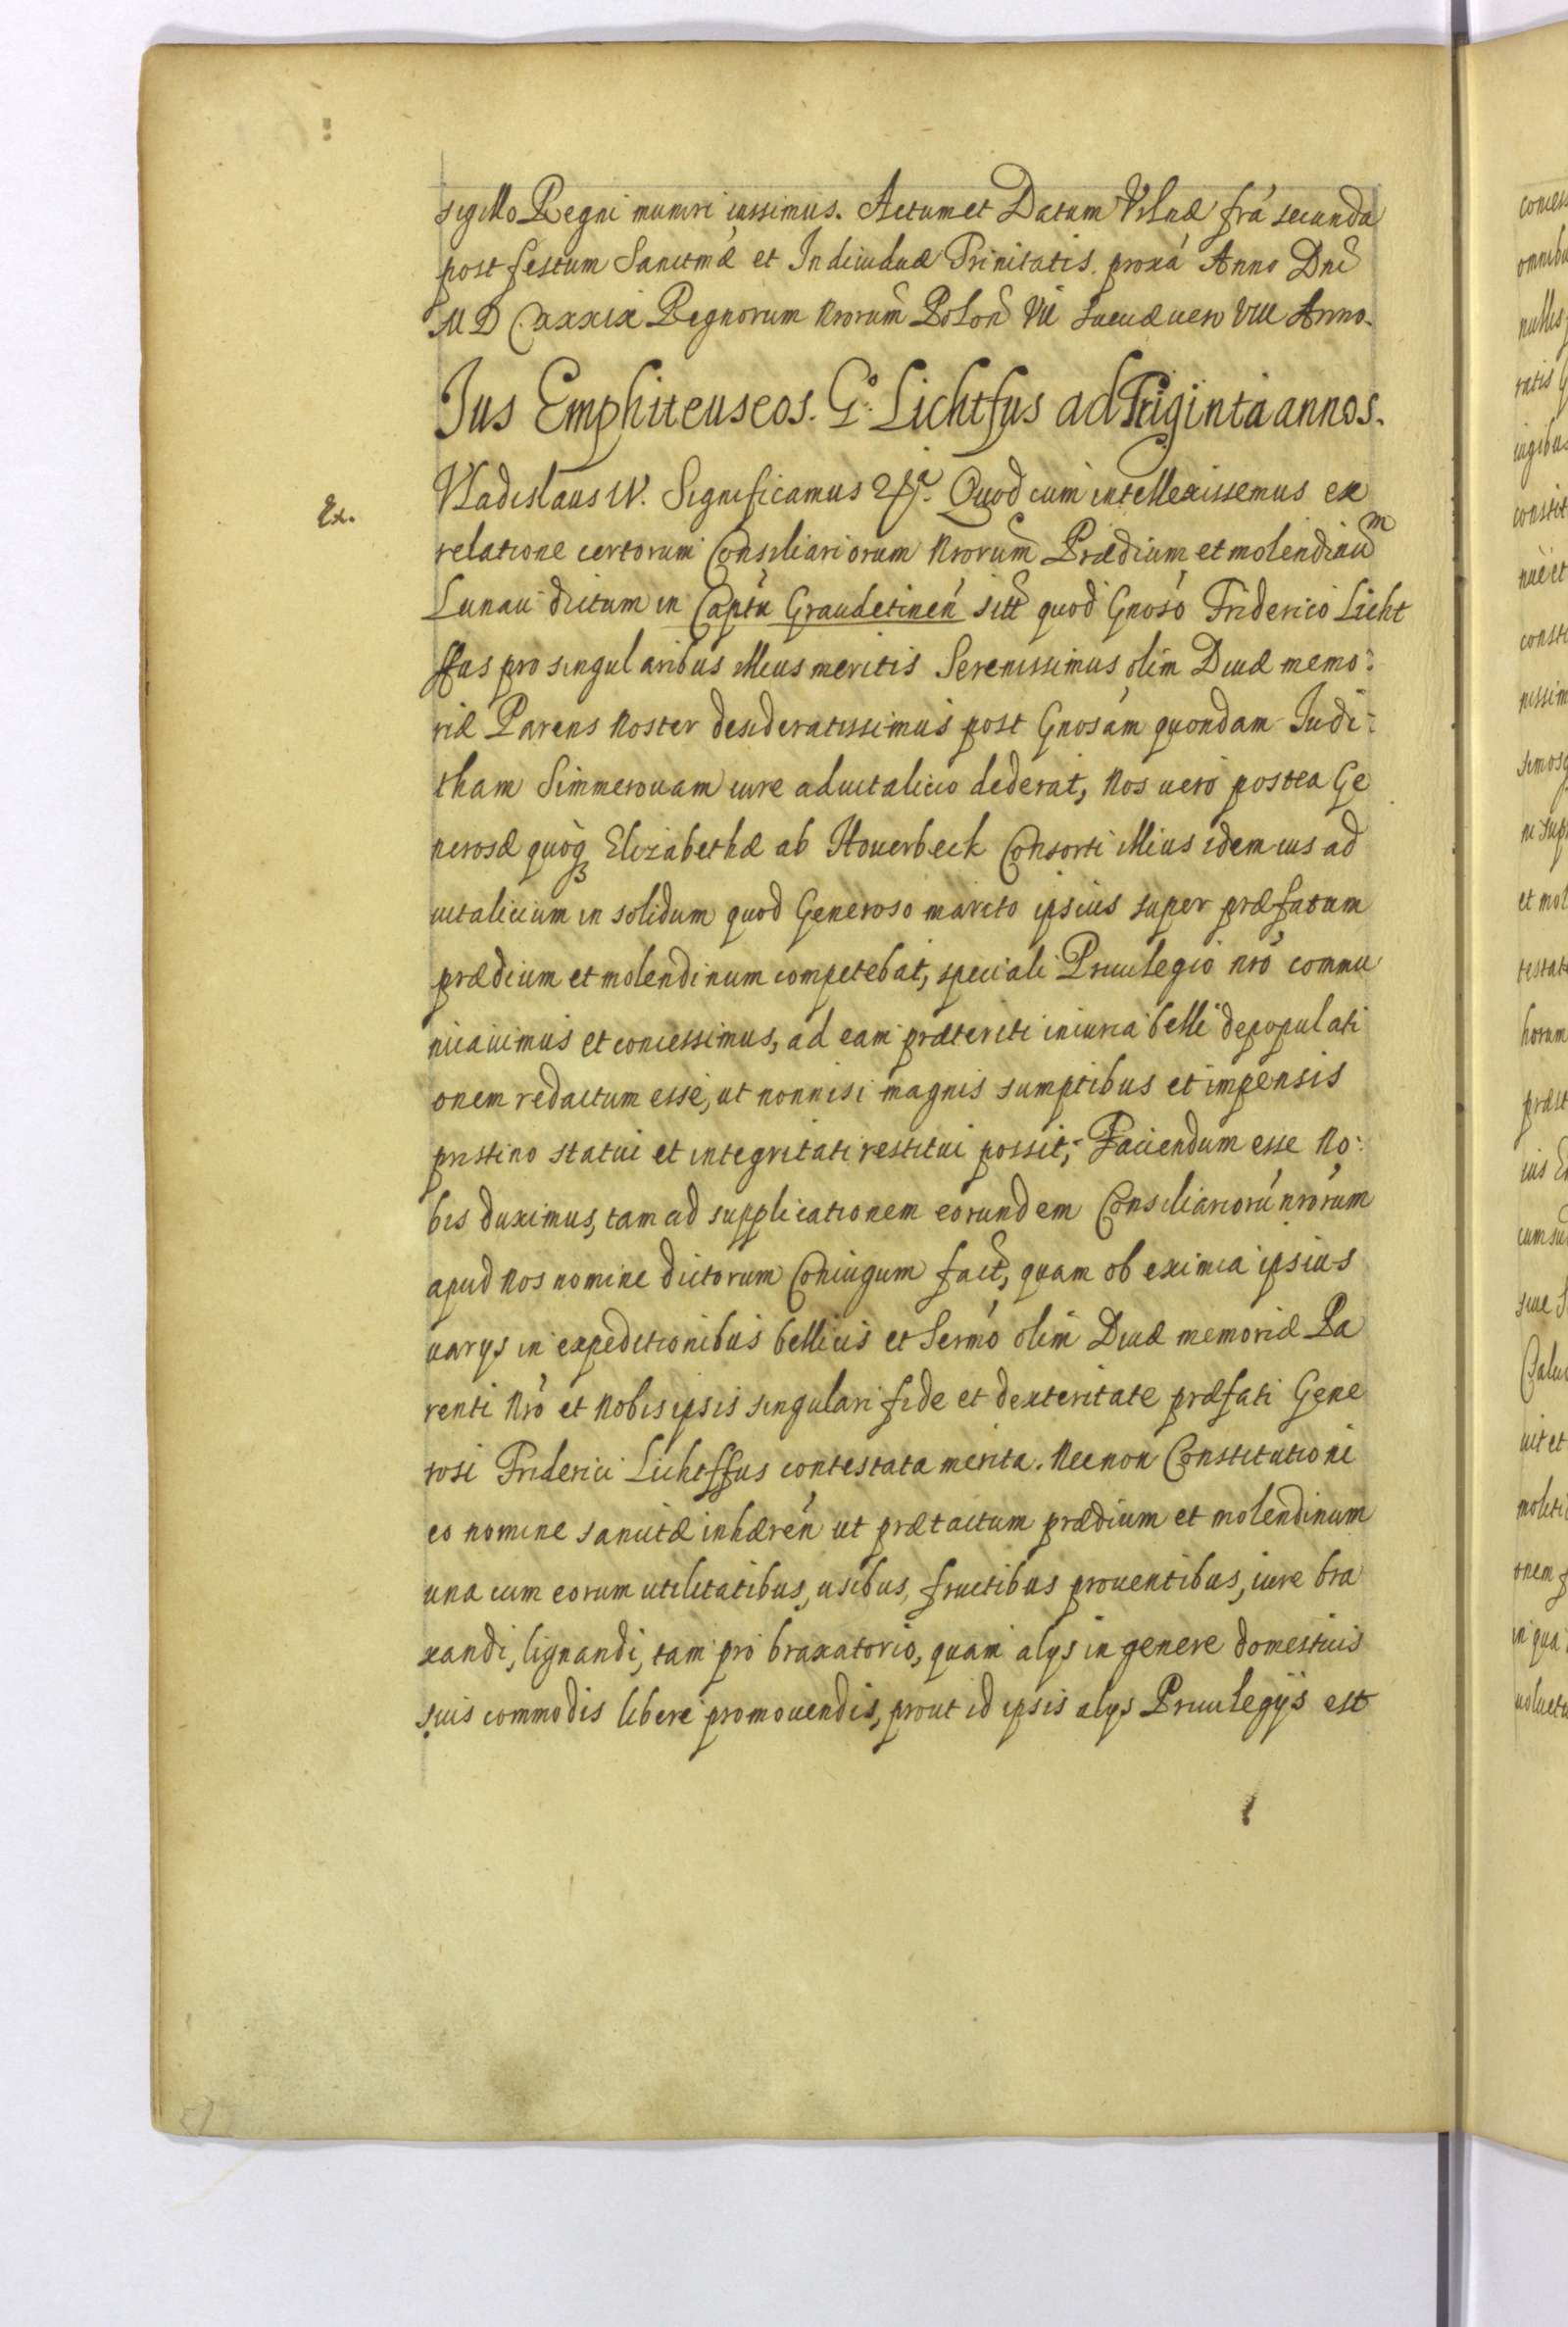 sigillo Regni muniri iussimus. Actum et Datum Vilnæ fra secunda
post festum Sanctmæ et Indiuiduæ Trinitatis proxa Anno Dni
MDCxxxix Regnorum Nrorum Polon VII Sueciæ uero VIII Anno.
Jus Emphiteuseos. Go: Lichtfus ad Triginta annos.
Ex.
Vladislaus IV. Significamus Quod cum intellexissemus ex
relatione certorum Consiliariorum Nrorum Prædium et molendinum
Lunau dictum in Captu Graudetinen sitt quod Gnoso Friderico Licht
ffus pro singularibus illius meritis Serenissimus olim Diuæ memo:
riæ Parens Noster desideratissimus post Gnosam quondam Iudi:
tham Simmerouam iure aduitalicio dederat, Nos uero postea Ge
nerosæ quoq Elizabethæ ab Houerbeck Consorti illius idem ius ad
uitalicium in solidum quod Generoso marito ipsius super præfatum
prædium et molendinum competebat, speciali Priuilegio nro commu
nicauimus et concessimus, ad eam præteriti iniuria belli depopulati
onem redactum esse, ut nonnisi magnis sumptibus et impensis
pristino statui et integritati restitui possit, Faciendum esse No:
bis duximus, tam ad supplicationem eorundem Consiliarioru nrorum
apud Nos nomine dictorum Coniugum fact, quam ob eximia ipsius
uarijs in expeditionibus bellicis et Sermo olim Diuæ memoriæ Pa
renti Nro et Nobis ipsis singulari fide et dexteritate præfati Gene
rosi Friderici Lichtffus contestata merita. Necnon Constitutioni
eo nomine sancitæ inhæren ut prætactum prædium et molendinum
una cum eorum utilitatibus, usibus, fructibus prouentibus, iure bra
xandi, lignandi, tam pro braxatorio, quam alijs in genere domesticis
suis commodis libere promouendis, prout id ipsis alijs Priuilegijs est